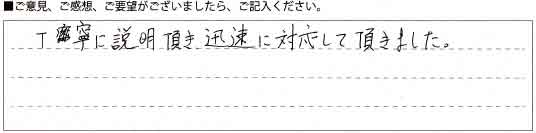 ■ご意見、ご感想、ご要望がございましたら、ご記入ください。
丁寧に説明頂き迅速に対応して頂きました。